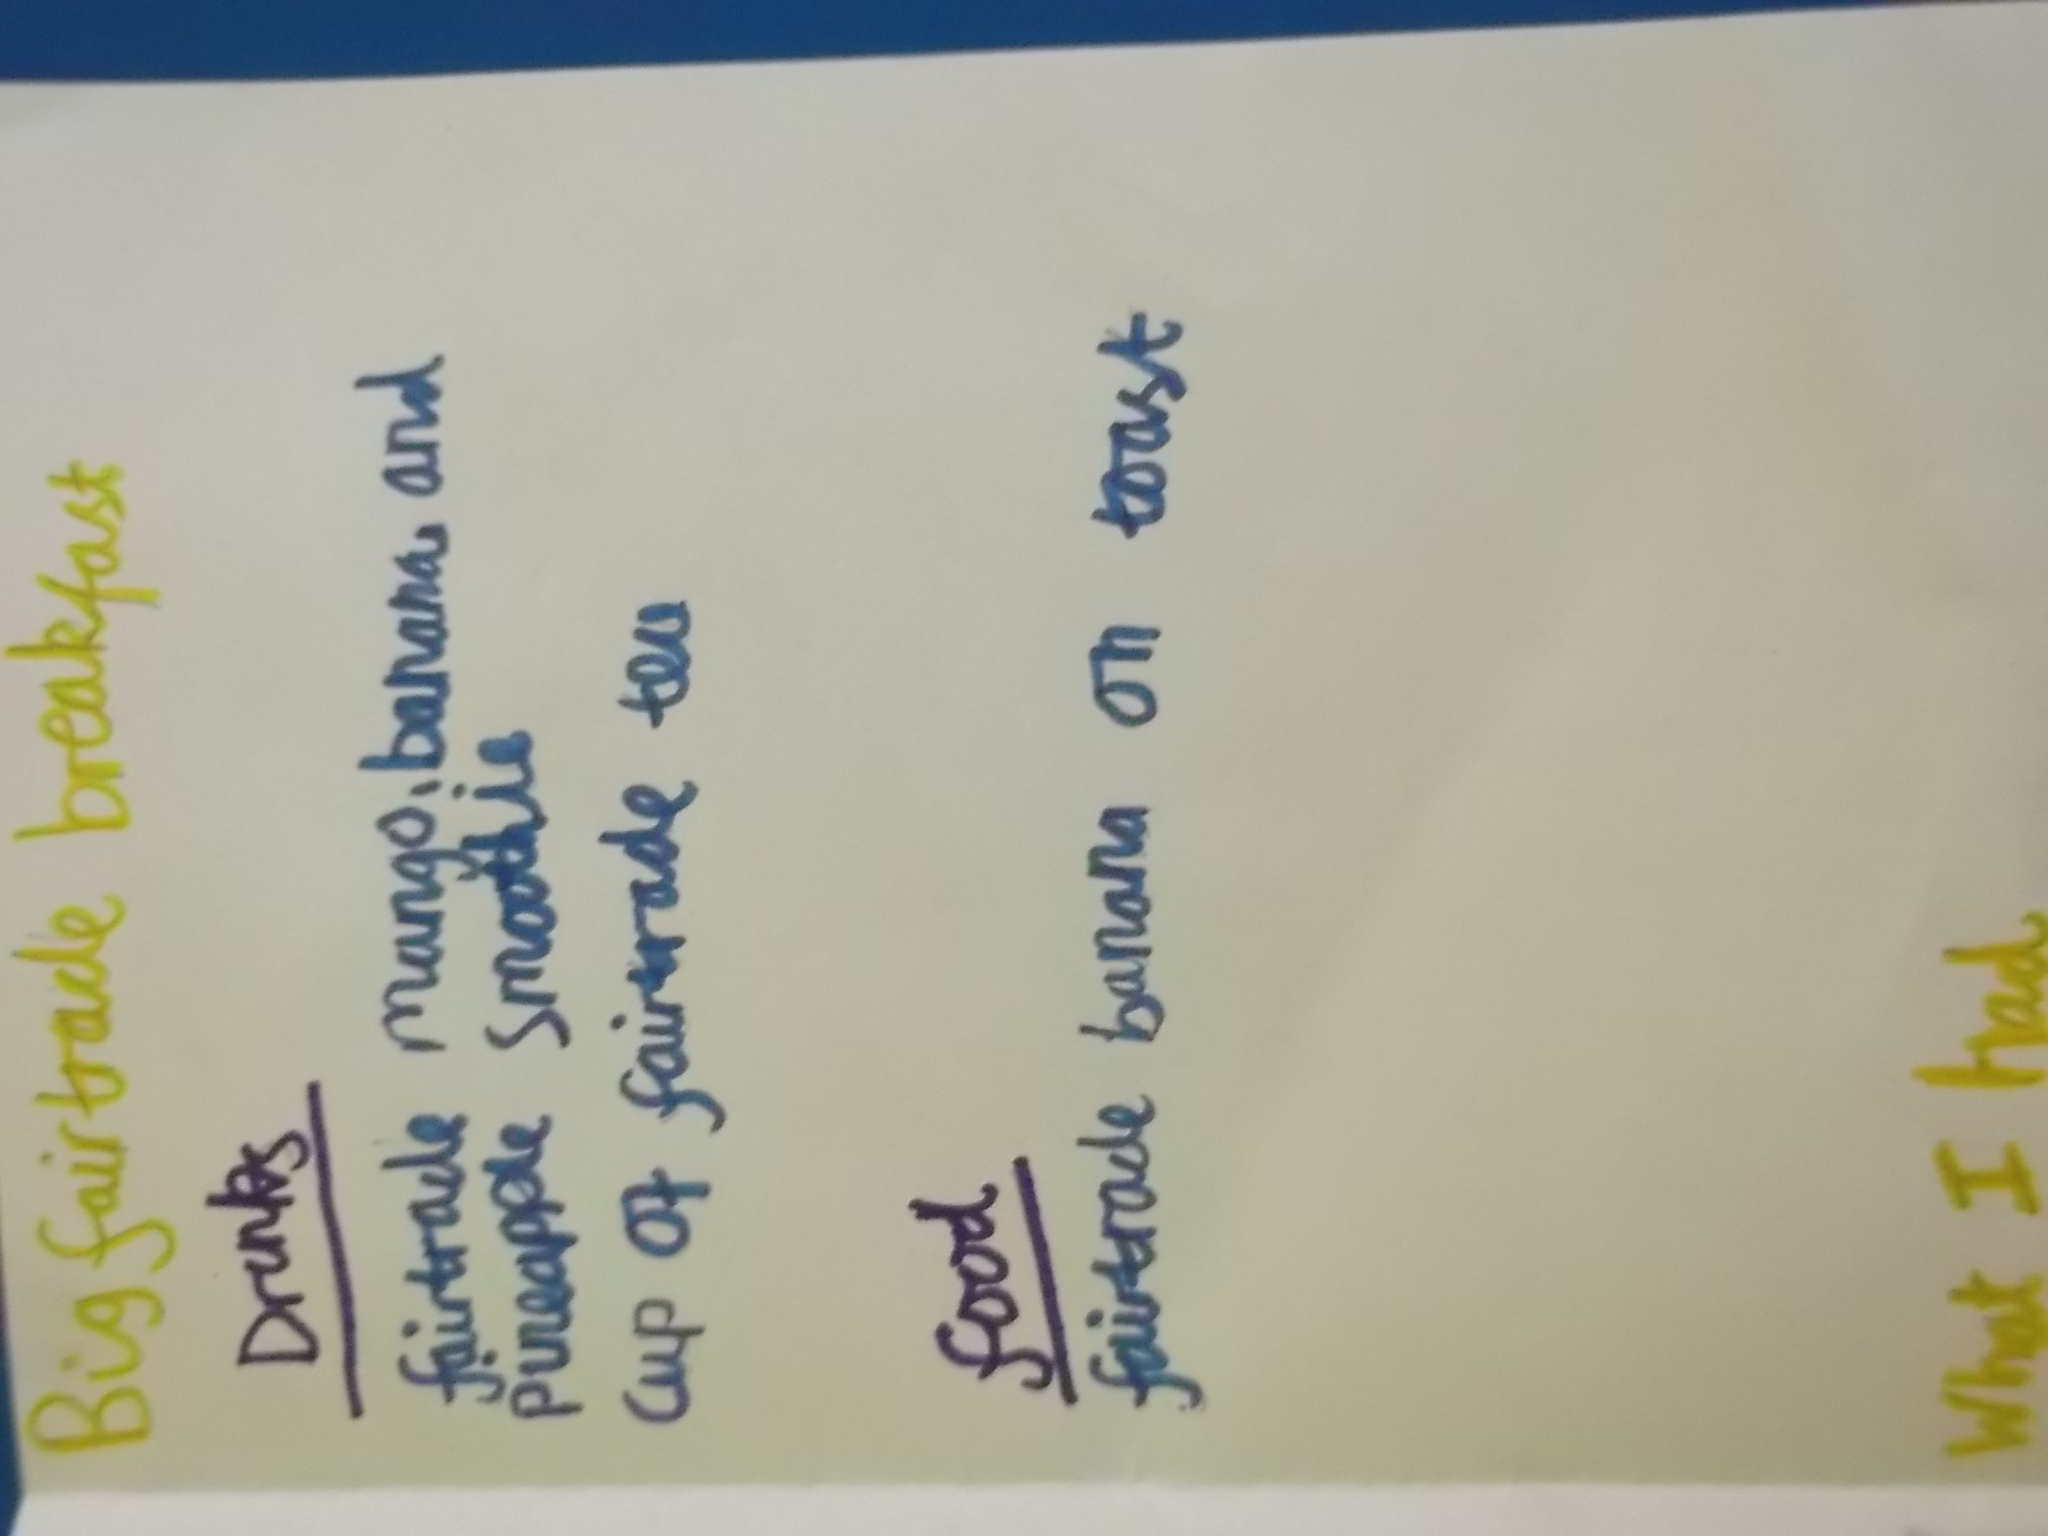 Big fairtrade breakfast
Drinks
fairtrade mango, banana and
pineapple smoothie
cup of fairtrade tea
food
fairtrade banana on toast
What I had